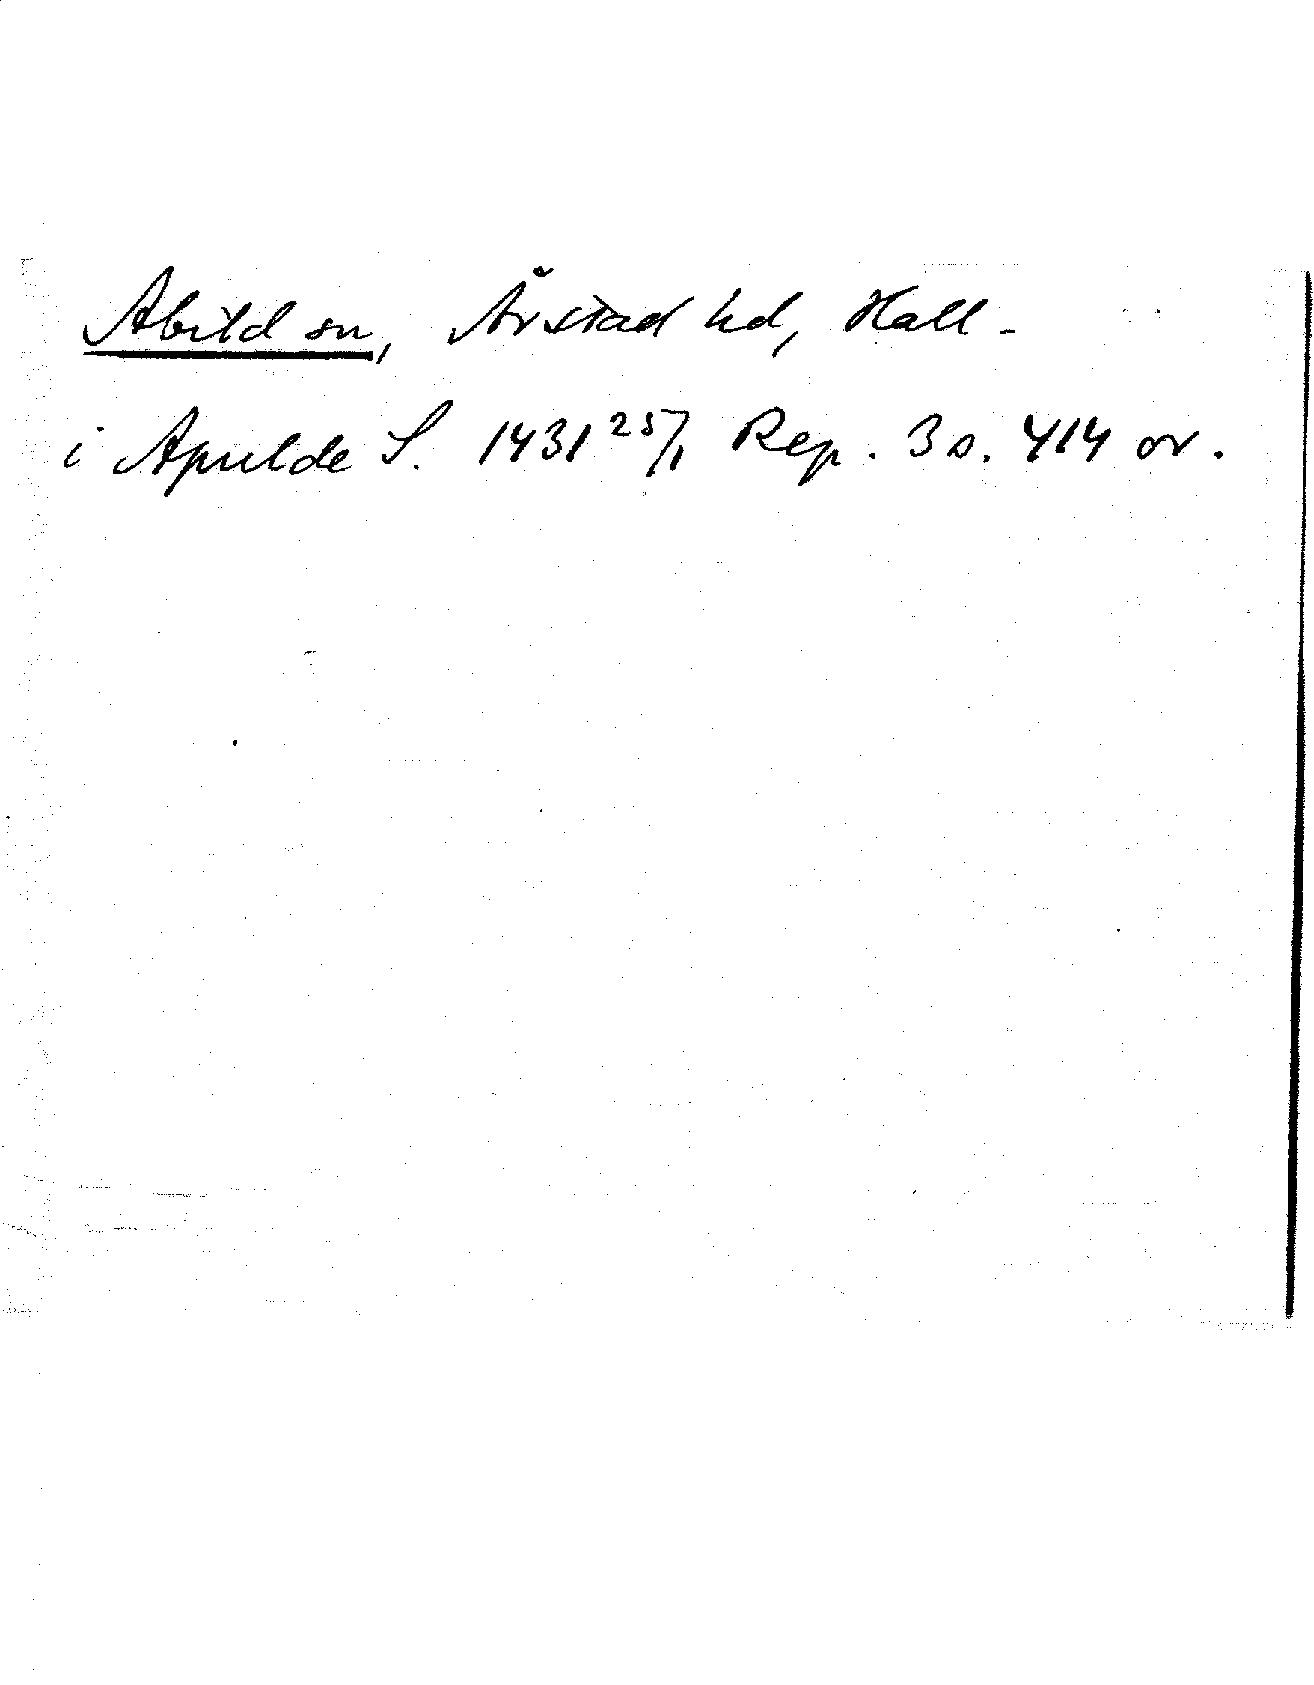 Abild sn, Årstad hd, Hall -
i Apulde S. 1431 25/1 Rep. 3 s. 414 or.